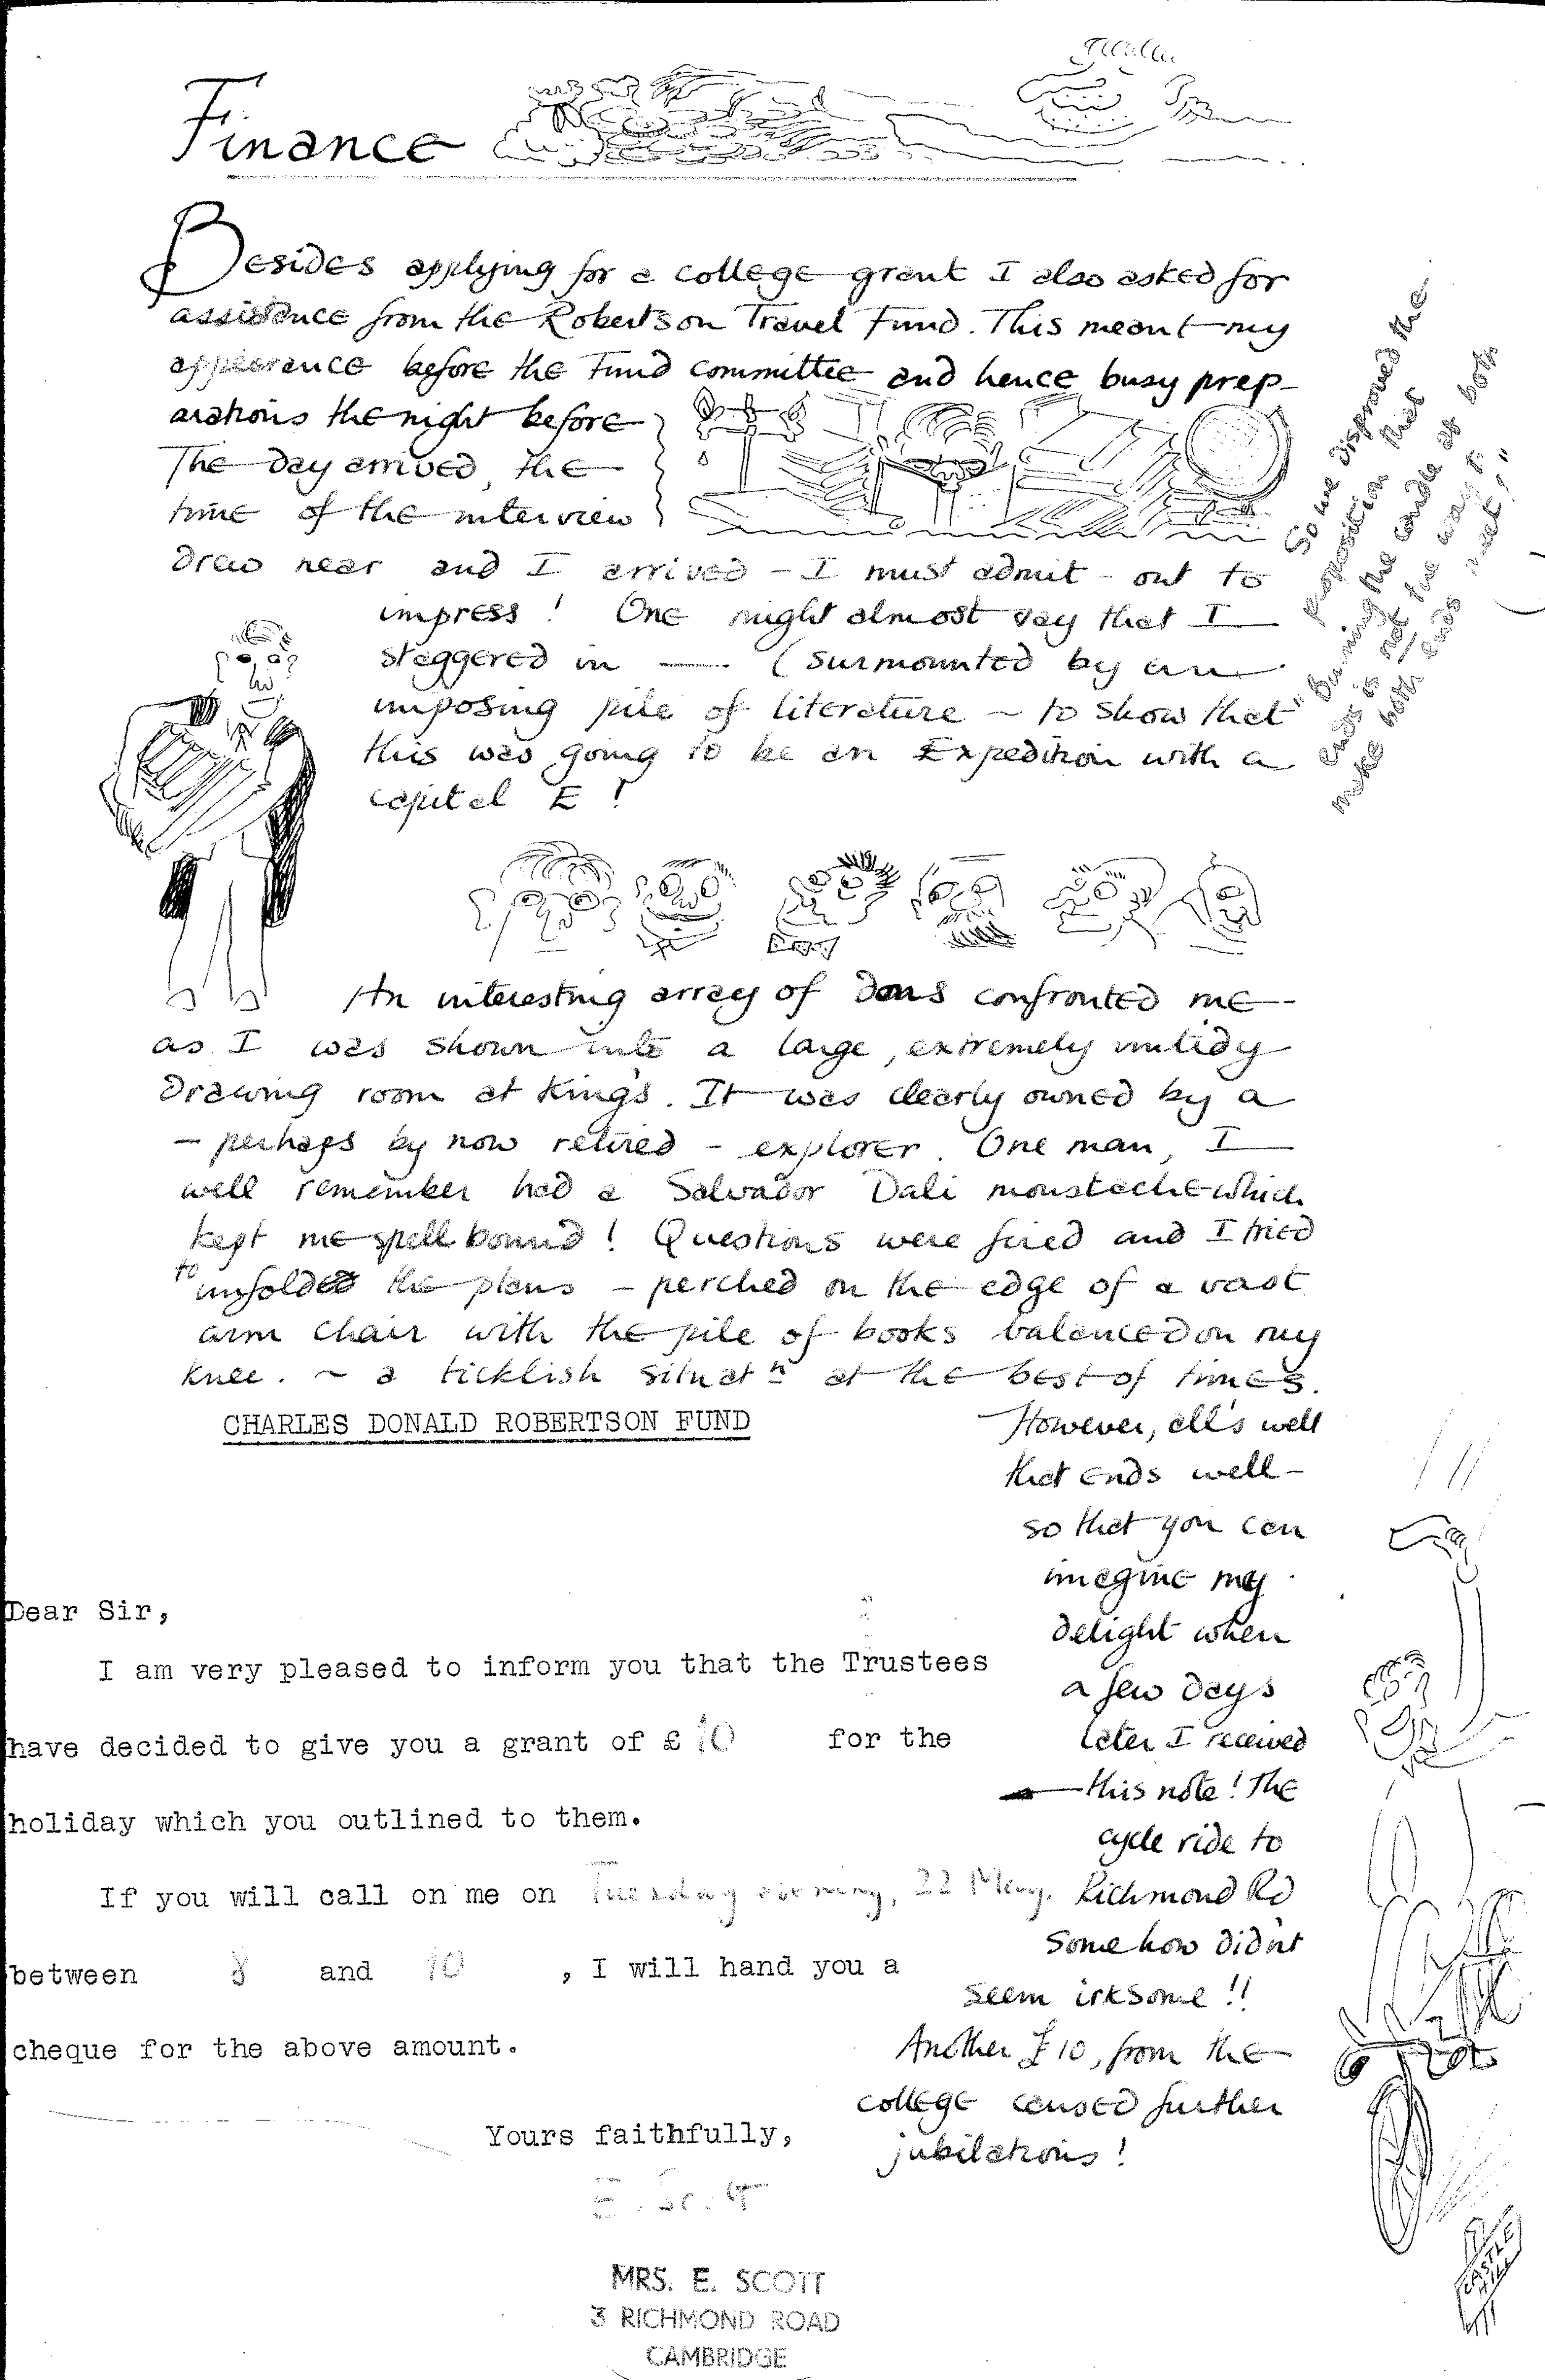 Finance
Besides applying for a college grant I also asked for
assistance from the Robertson Travel Fund. This meant my
appearance before the Fund committee and hence busy prep-
arations the night before
The day arrived, the
time of the interview
drew near and I arrived - I must admit - out to
impress! One might almost say that I
staggered in — (surmounted by an
imposing pile of literature ~ to show that
this was going to be an Expedition with a
capital E!
So we disproved the
proposition that
"burning the candle at both
ends is not the way to
make both ends meet!"
An interesting array of dons confronted me
as I was shown into a large, extremely untidy
drawing room at King's. It was clearly owned by a
- perhaps by now retired - explorer. One man, I
well remember had a Salvador Dali moustache which
kept me spellbound! Questions were fired and I tried
to unfold the plans - perched on the edge of a vast
arm chair with the pile of books balanced on my
knee. ~ a ticklish situatn at the best of times.
CHARLES DONALD ROBERTSON FUND
However, all's well
that ends well -
so that you can
imagine my
delight when
a few days
later I received
this note! The
cycle ride to
Richmond Rd
Somehow didn't
seem irksome!!
Another £10, from the
college caused further
jubilations!
Dear Sir,
I am very pleased to inform you that the Trustees
have decided to give you a grant of £10 for the
holiday which you outlined to them.
If you will call on me on Tuesday evening, 22 May.
between 8 and 10, I will hand you a
cheque for the above amount.
Yours faithfully,
E. Scott
MRS. E. SCOTT
3 RICHMOND ROAD
CAMBRIDGE
CASTLE